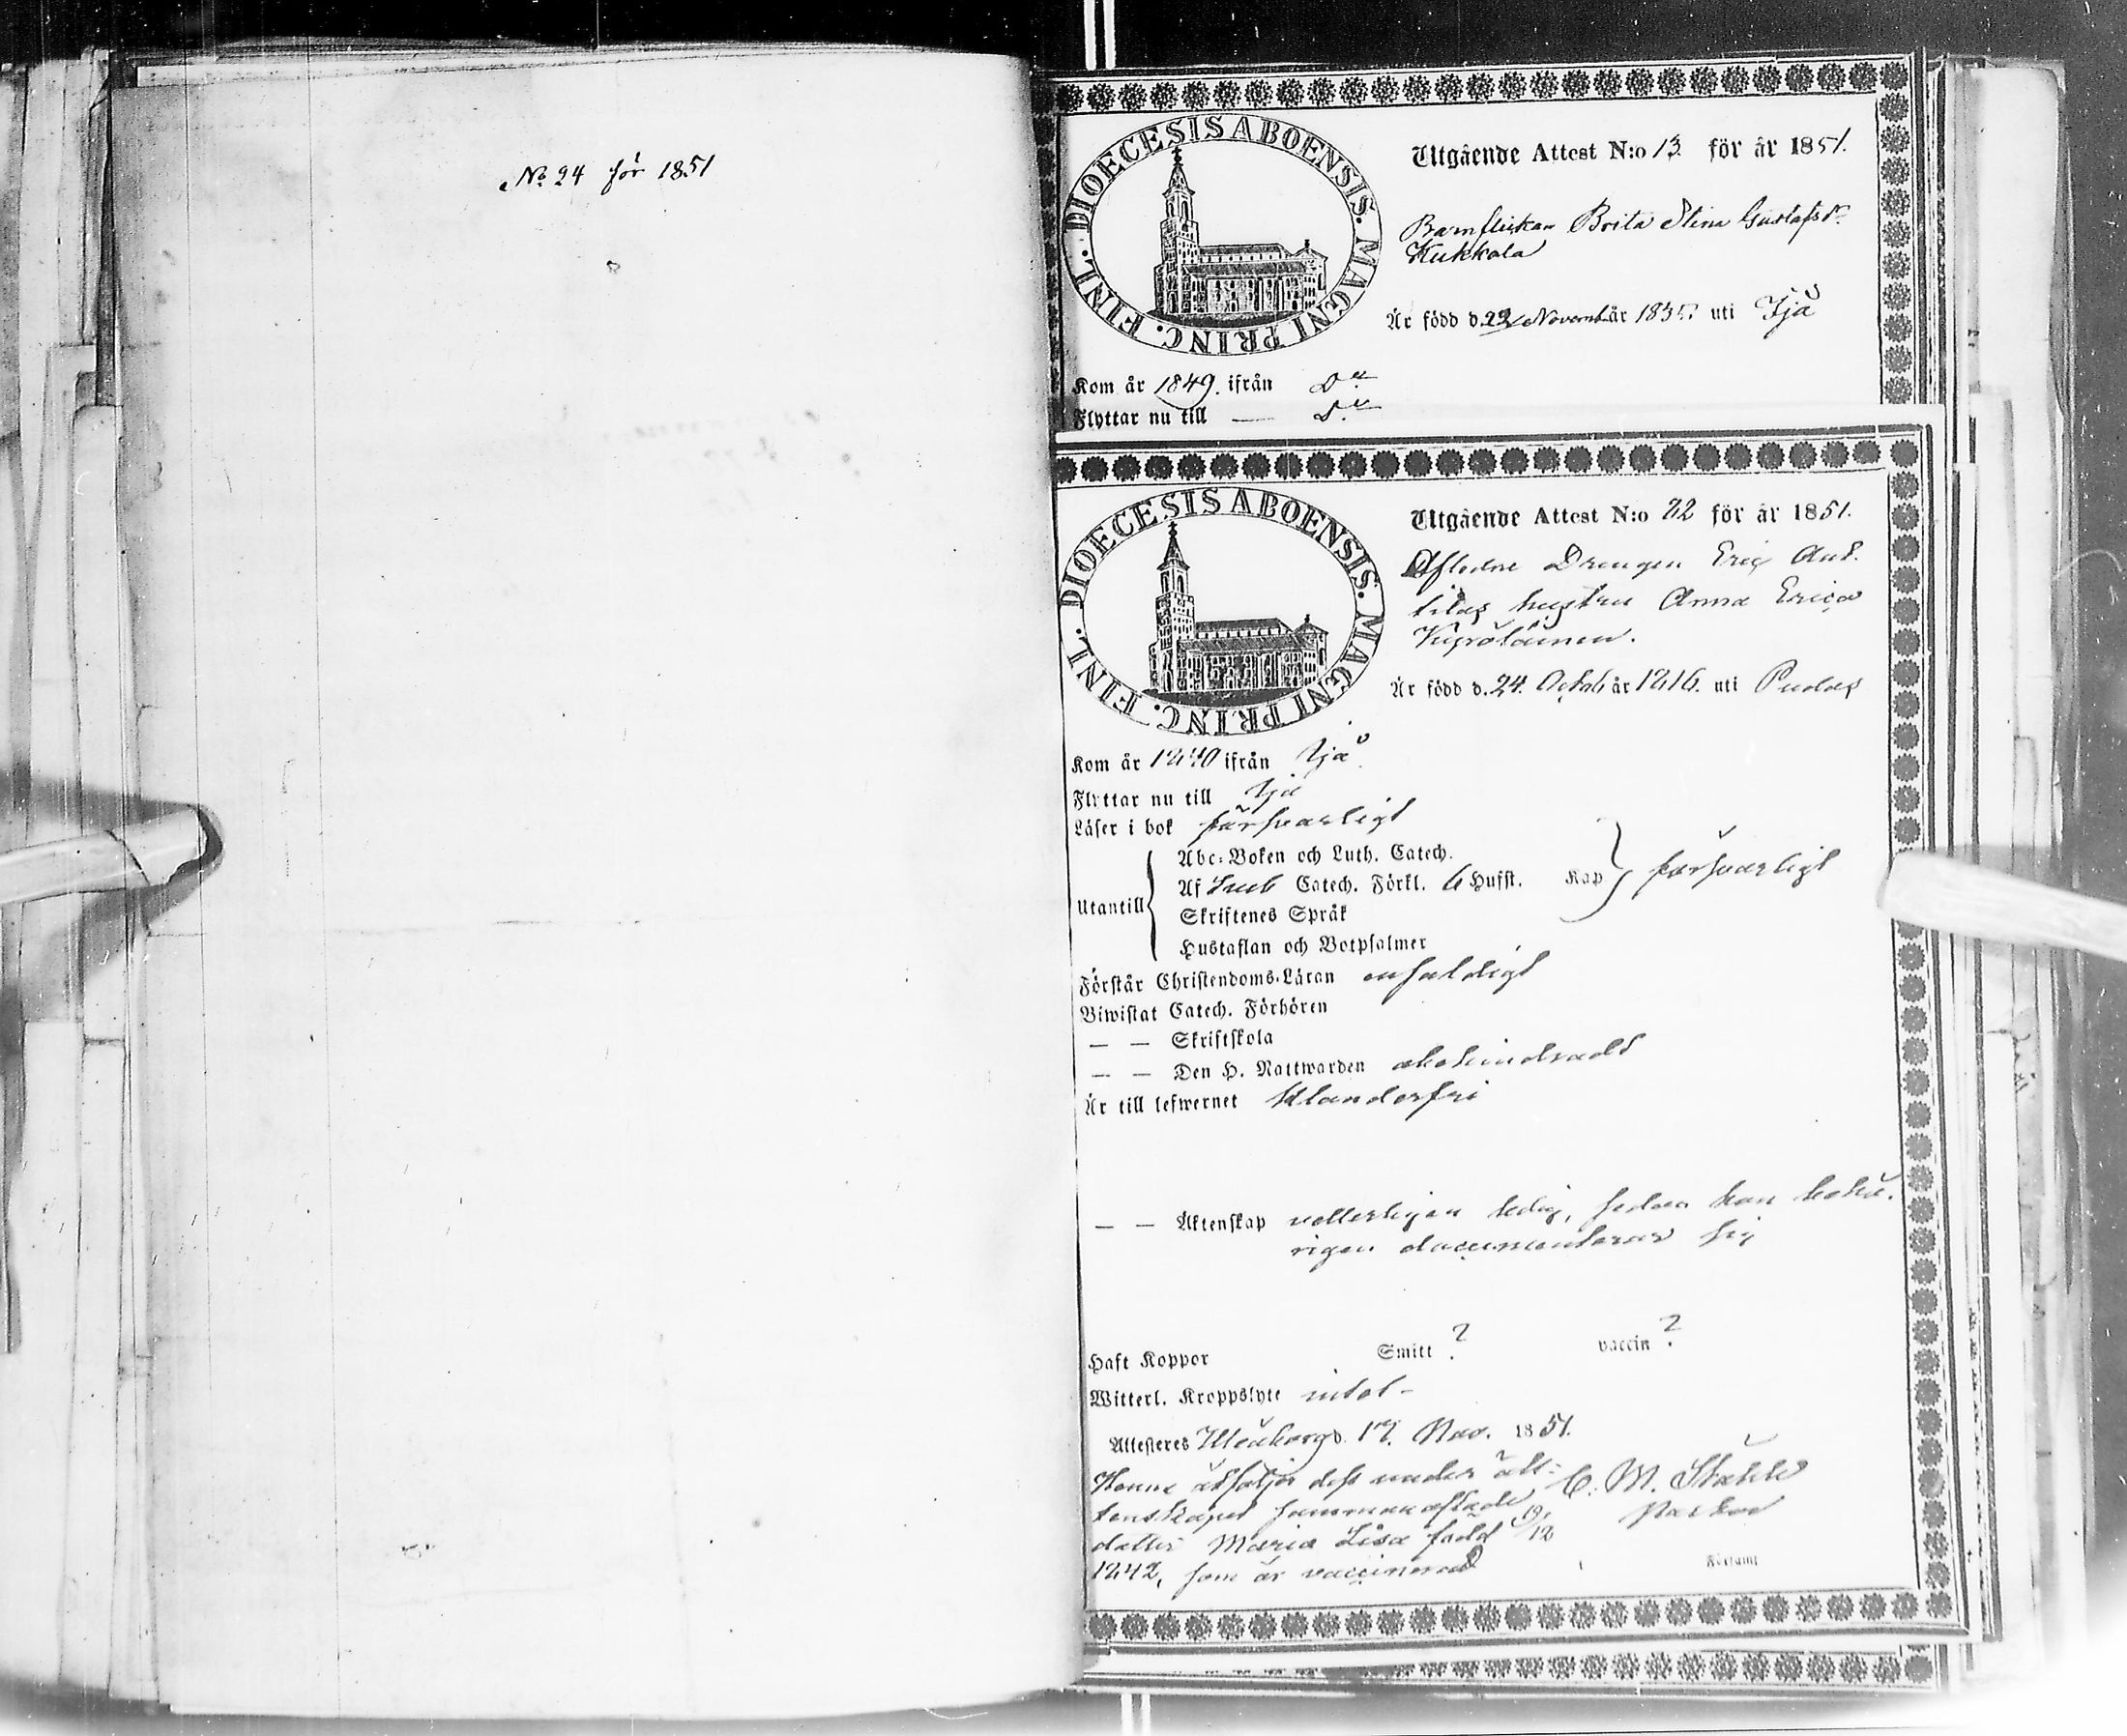 No 24 för 1851
DIOECESIS ABOENSIS. MAGNI PRINC. FINL.
Utgående Attest N:o 13. för år 1851.
Barnflickan Brita Stina Gustafsdr
Kukkola
Är född d. 22 Novemb. år 183 uti Ijå
Kom år 1849. ifrån Do
Flyttar nu till — Do
DIOECESIS ABOENSIS. MAGNI PRINC. FINL.
Utgående Attest N:o 22 för år 1851.
Aflidne Drengen Eric Ant-
tilas hustru Anna Erica
Kyröläinen.
Är född d. 24. Octob. år 1816. uti Pudas
Kom år 1840 ifrån Ijå
Flyttar nu till Ijå
Läser i bok försvarligt
Utantill
Abc-Boken och Luth. Catech.
Af Sveb Catech. Förkl. 6 Hufst. Kap försvarligt
Skriftenes Språk
Hustaflan och Botpsalmer
Förstår Christendoms-Läran enfaldigt
Biwistat Catech. Förhören
— — Skriftskola
— — Den H. Nattwarden obehindradt
Är till lefwernet klanderfri
— — Äktenskap vetterligen ledig, sedan hon behö-
rigen documenterar sig
Haft Koppor Smitt ? vaccin ?
Witterl. Kroppslyte intet -
Attesteres Uleåborg d. 17. Nov. 1851.
Henne åtföljer dess under äk-
tenskapet sammanaflade
dotter Maria Lisa född 19/12
1842, som är vaccinerad
C. M. Ståhle
Pastor
Förſaml